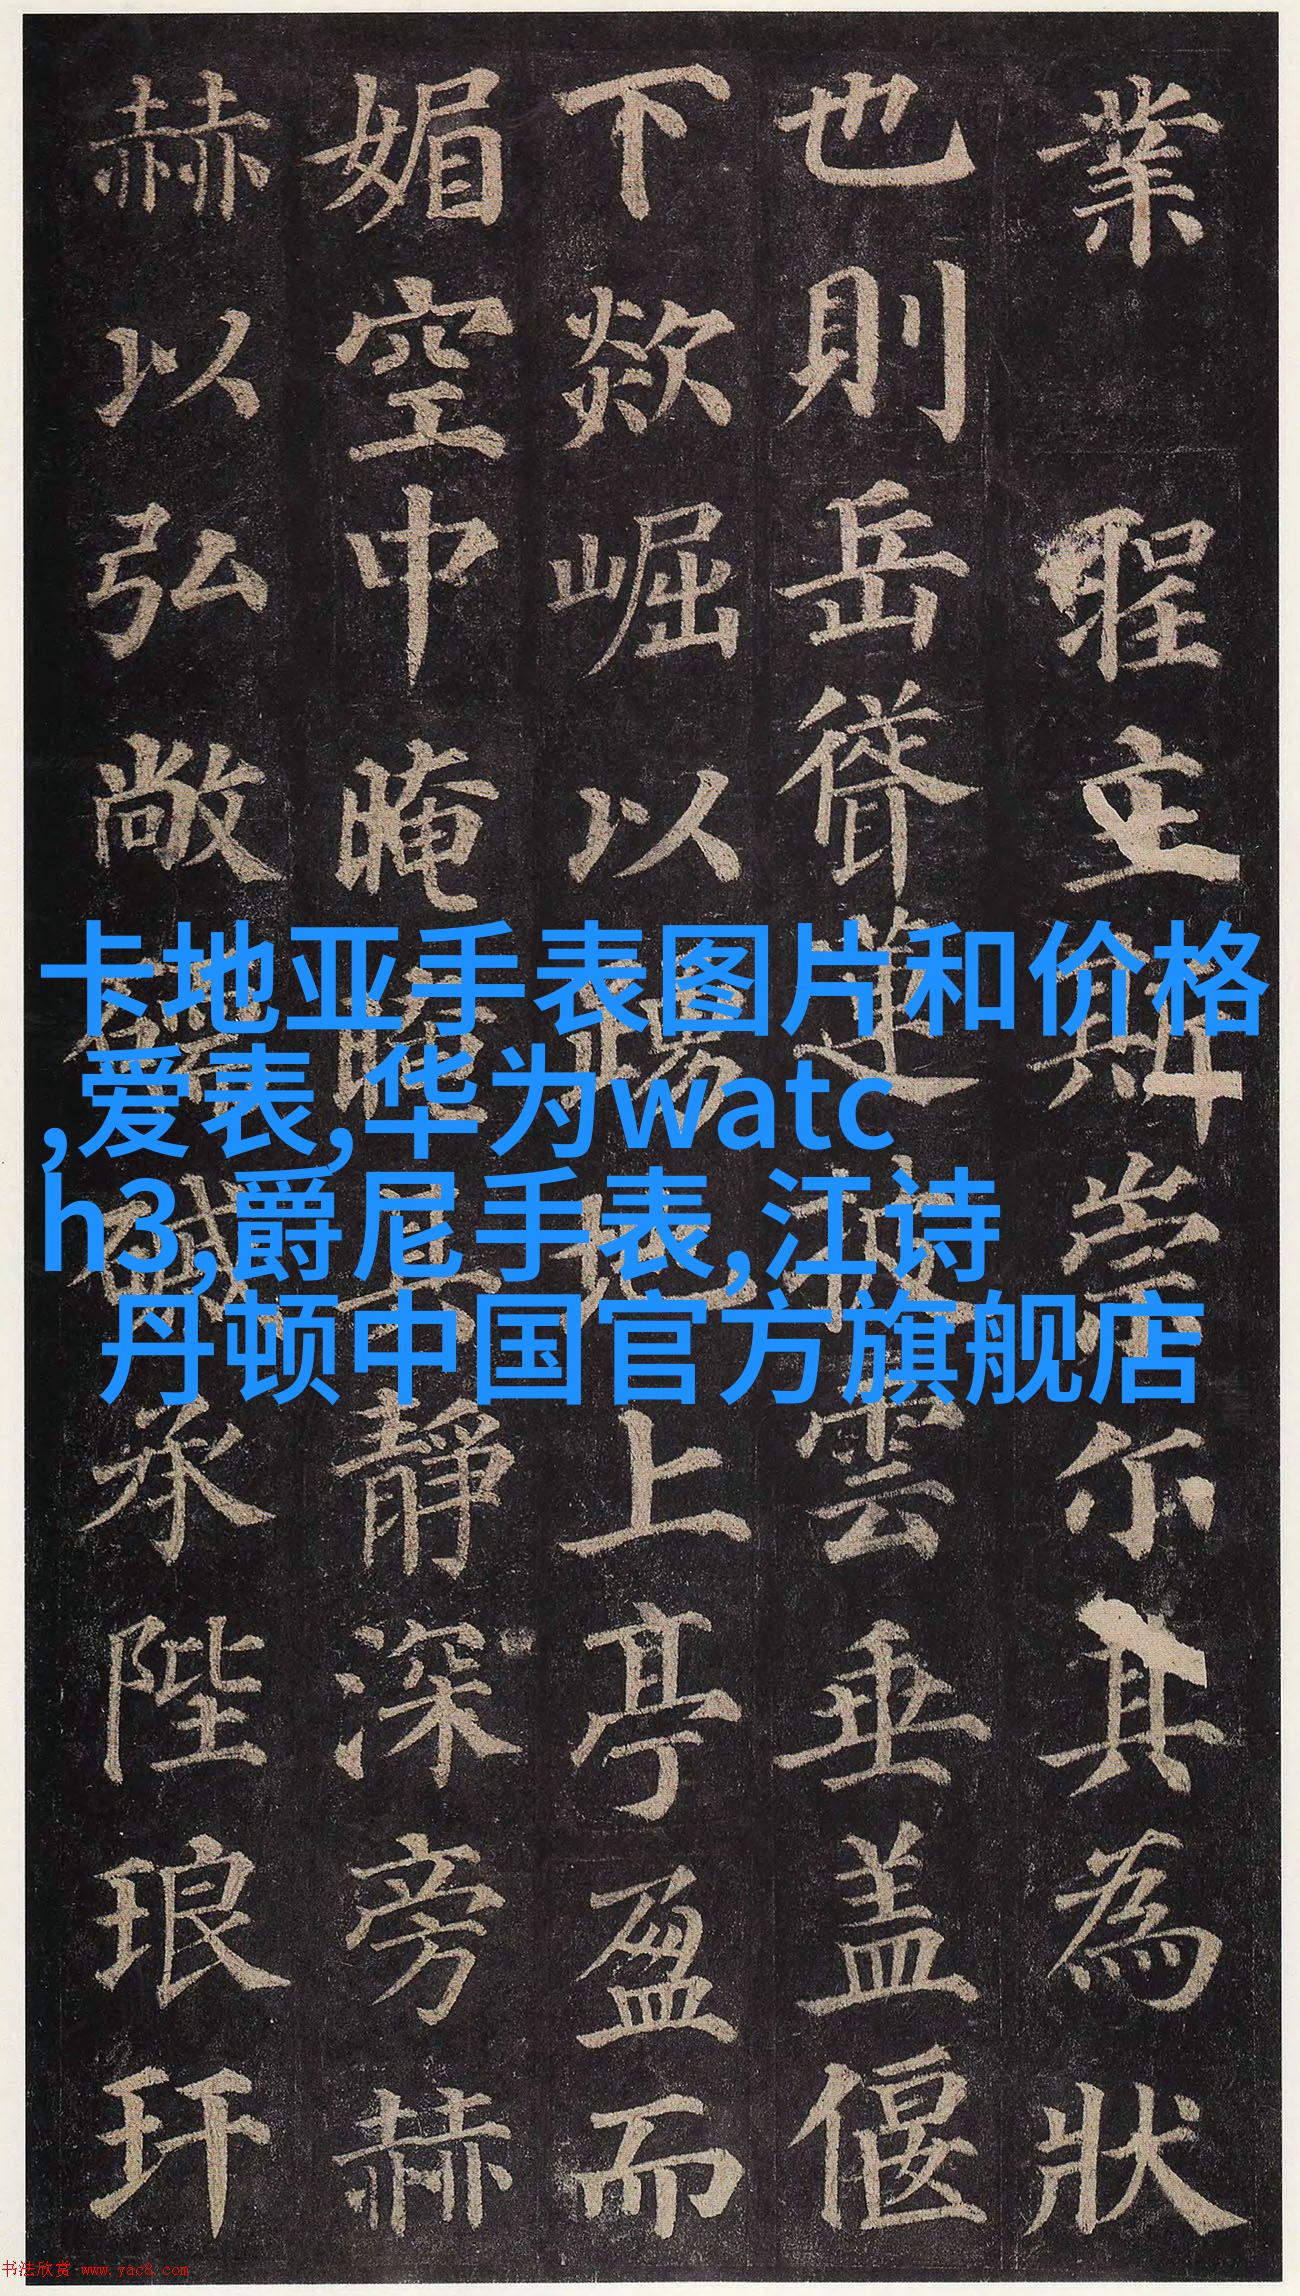 業立斯崇尔其為狀
也則岳聳蓮披雲垂盖偃
下欻崛以地上亭盈而
媚空中晻曖其靜深旁赫
赫以弘敞承陛琅玕
卡地亚手表图片和价格
,爱表,华为watc
h3,爵尼手表,江诗
丹顿中国官方旗舰店
书法欣赏 www.yac8.com